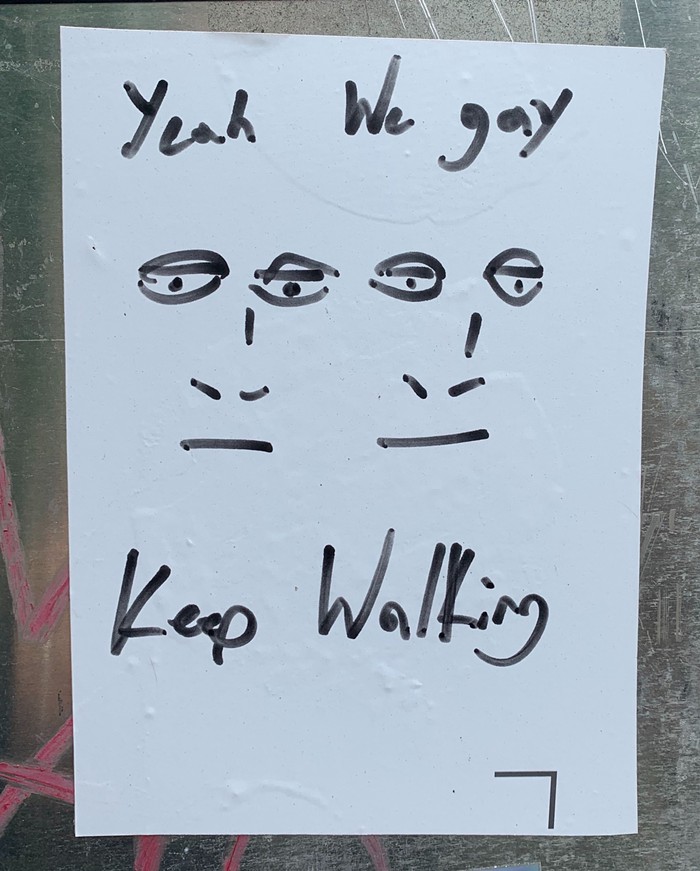 Yeah We gay
Keep Walking